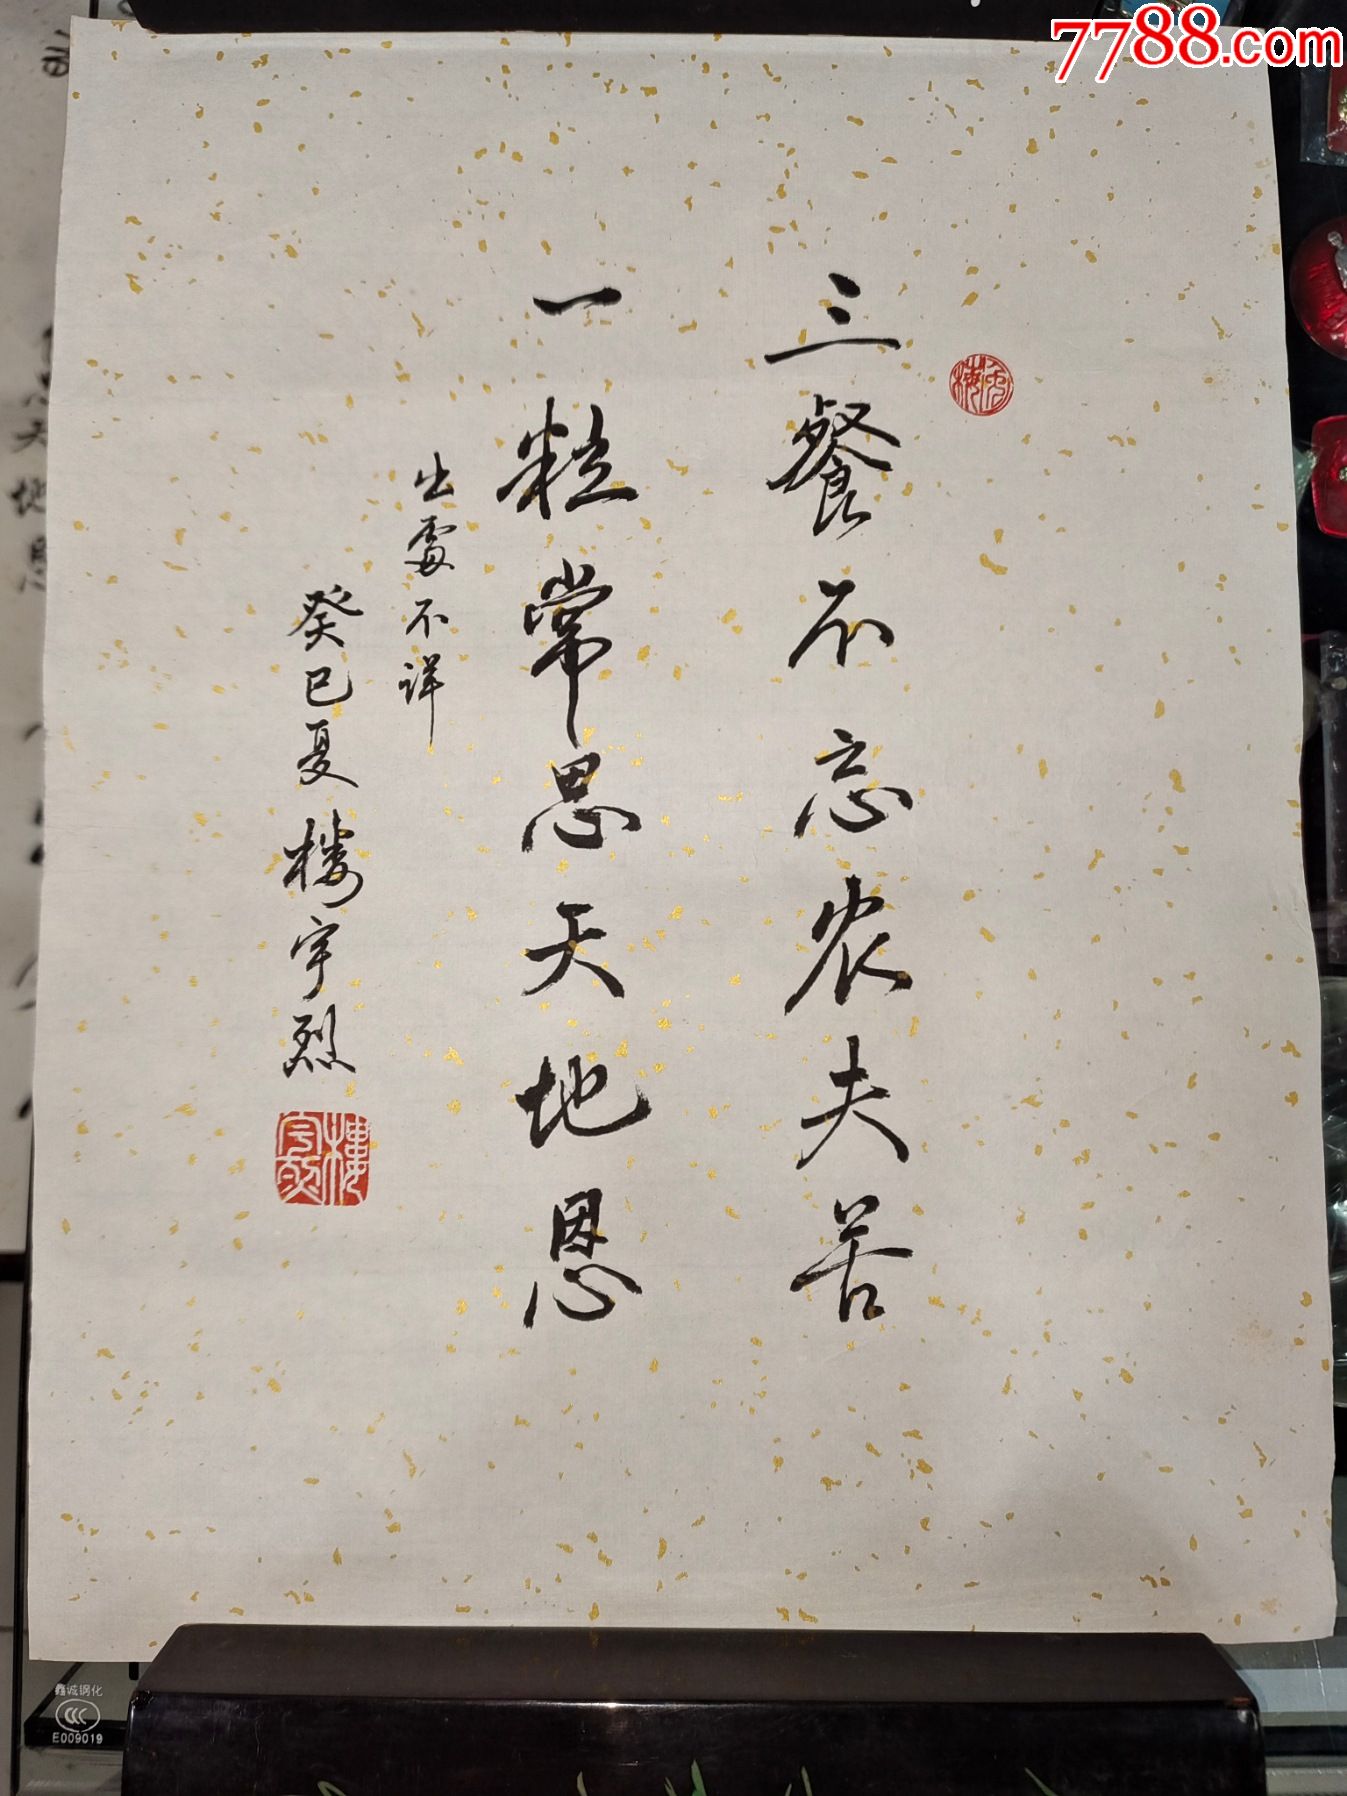 7788.com
三餐不忘农夫苦
一粒常思天地恩
出處不详
癸巳夏 楼宇烈
樓宇烈
天地恩
鑫诚钢化
CCC
E009019